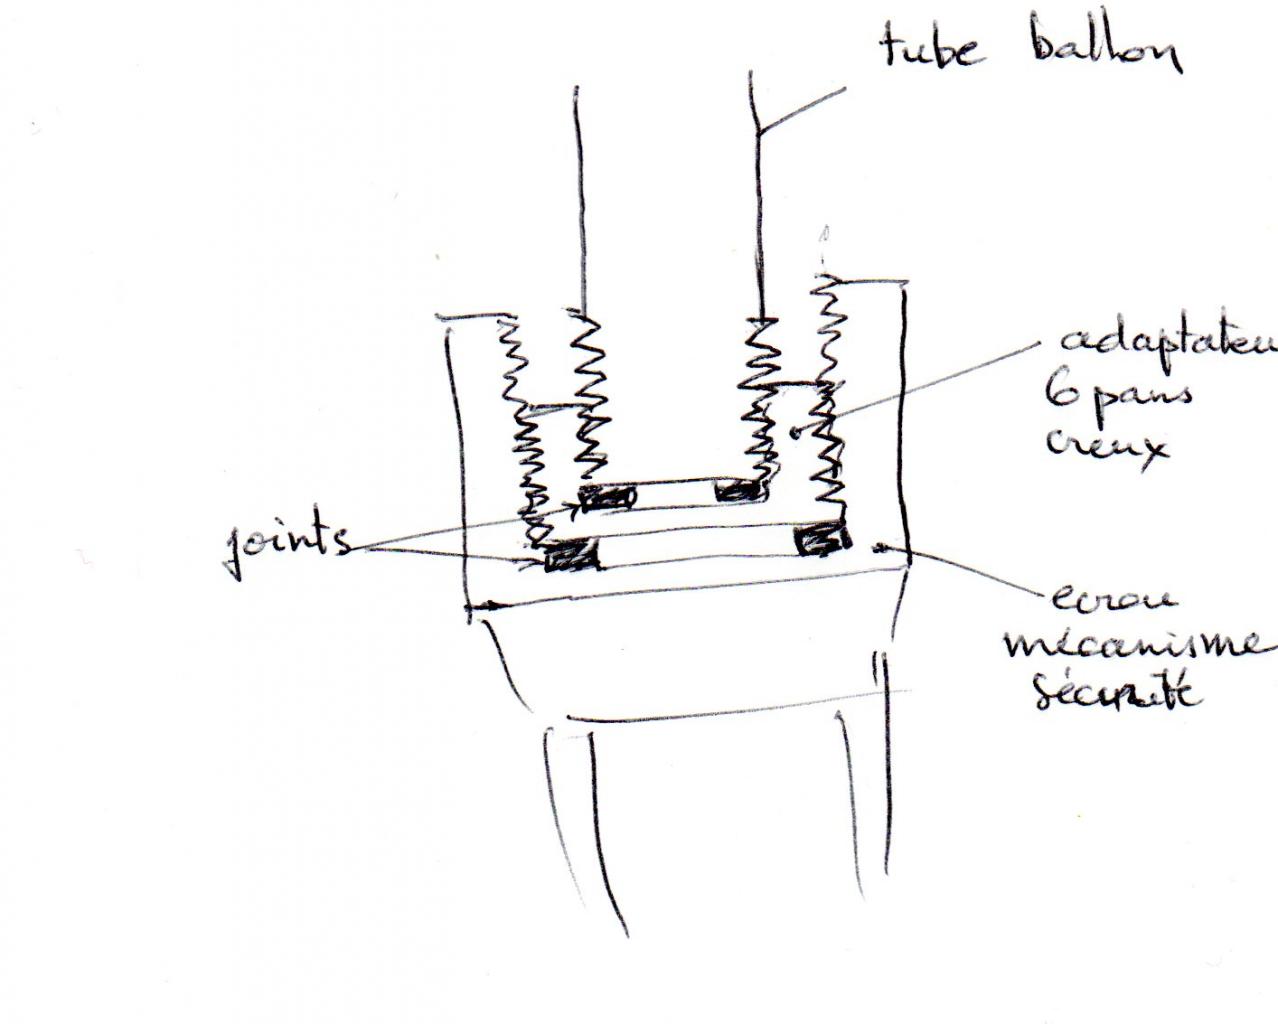 tube ballon
adaptateu
6 pans
creux
joints
ecrou
mécanisme
sécurité